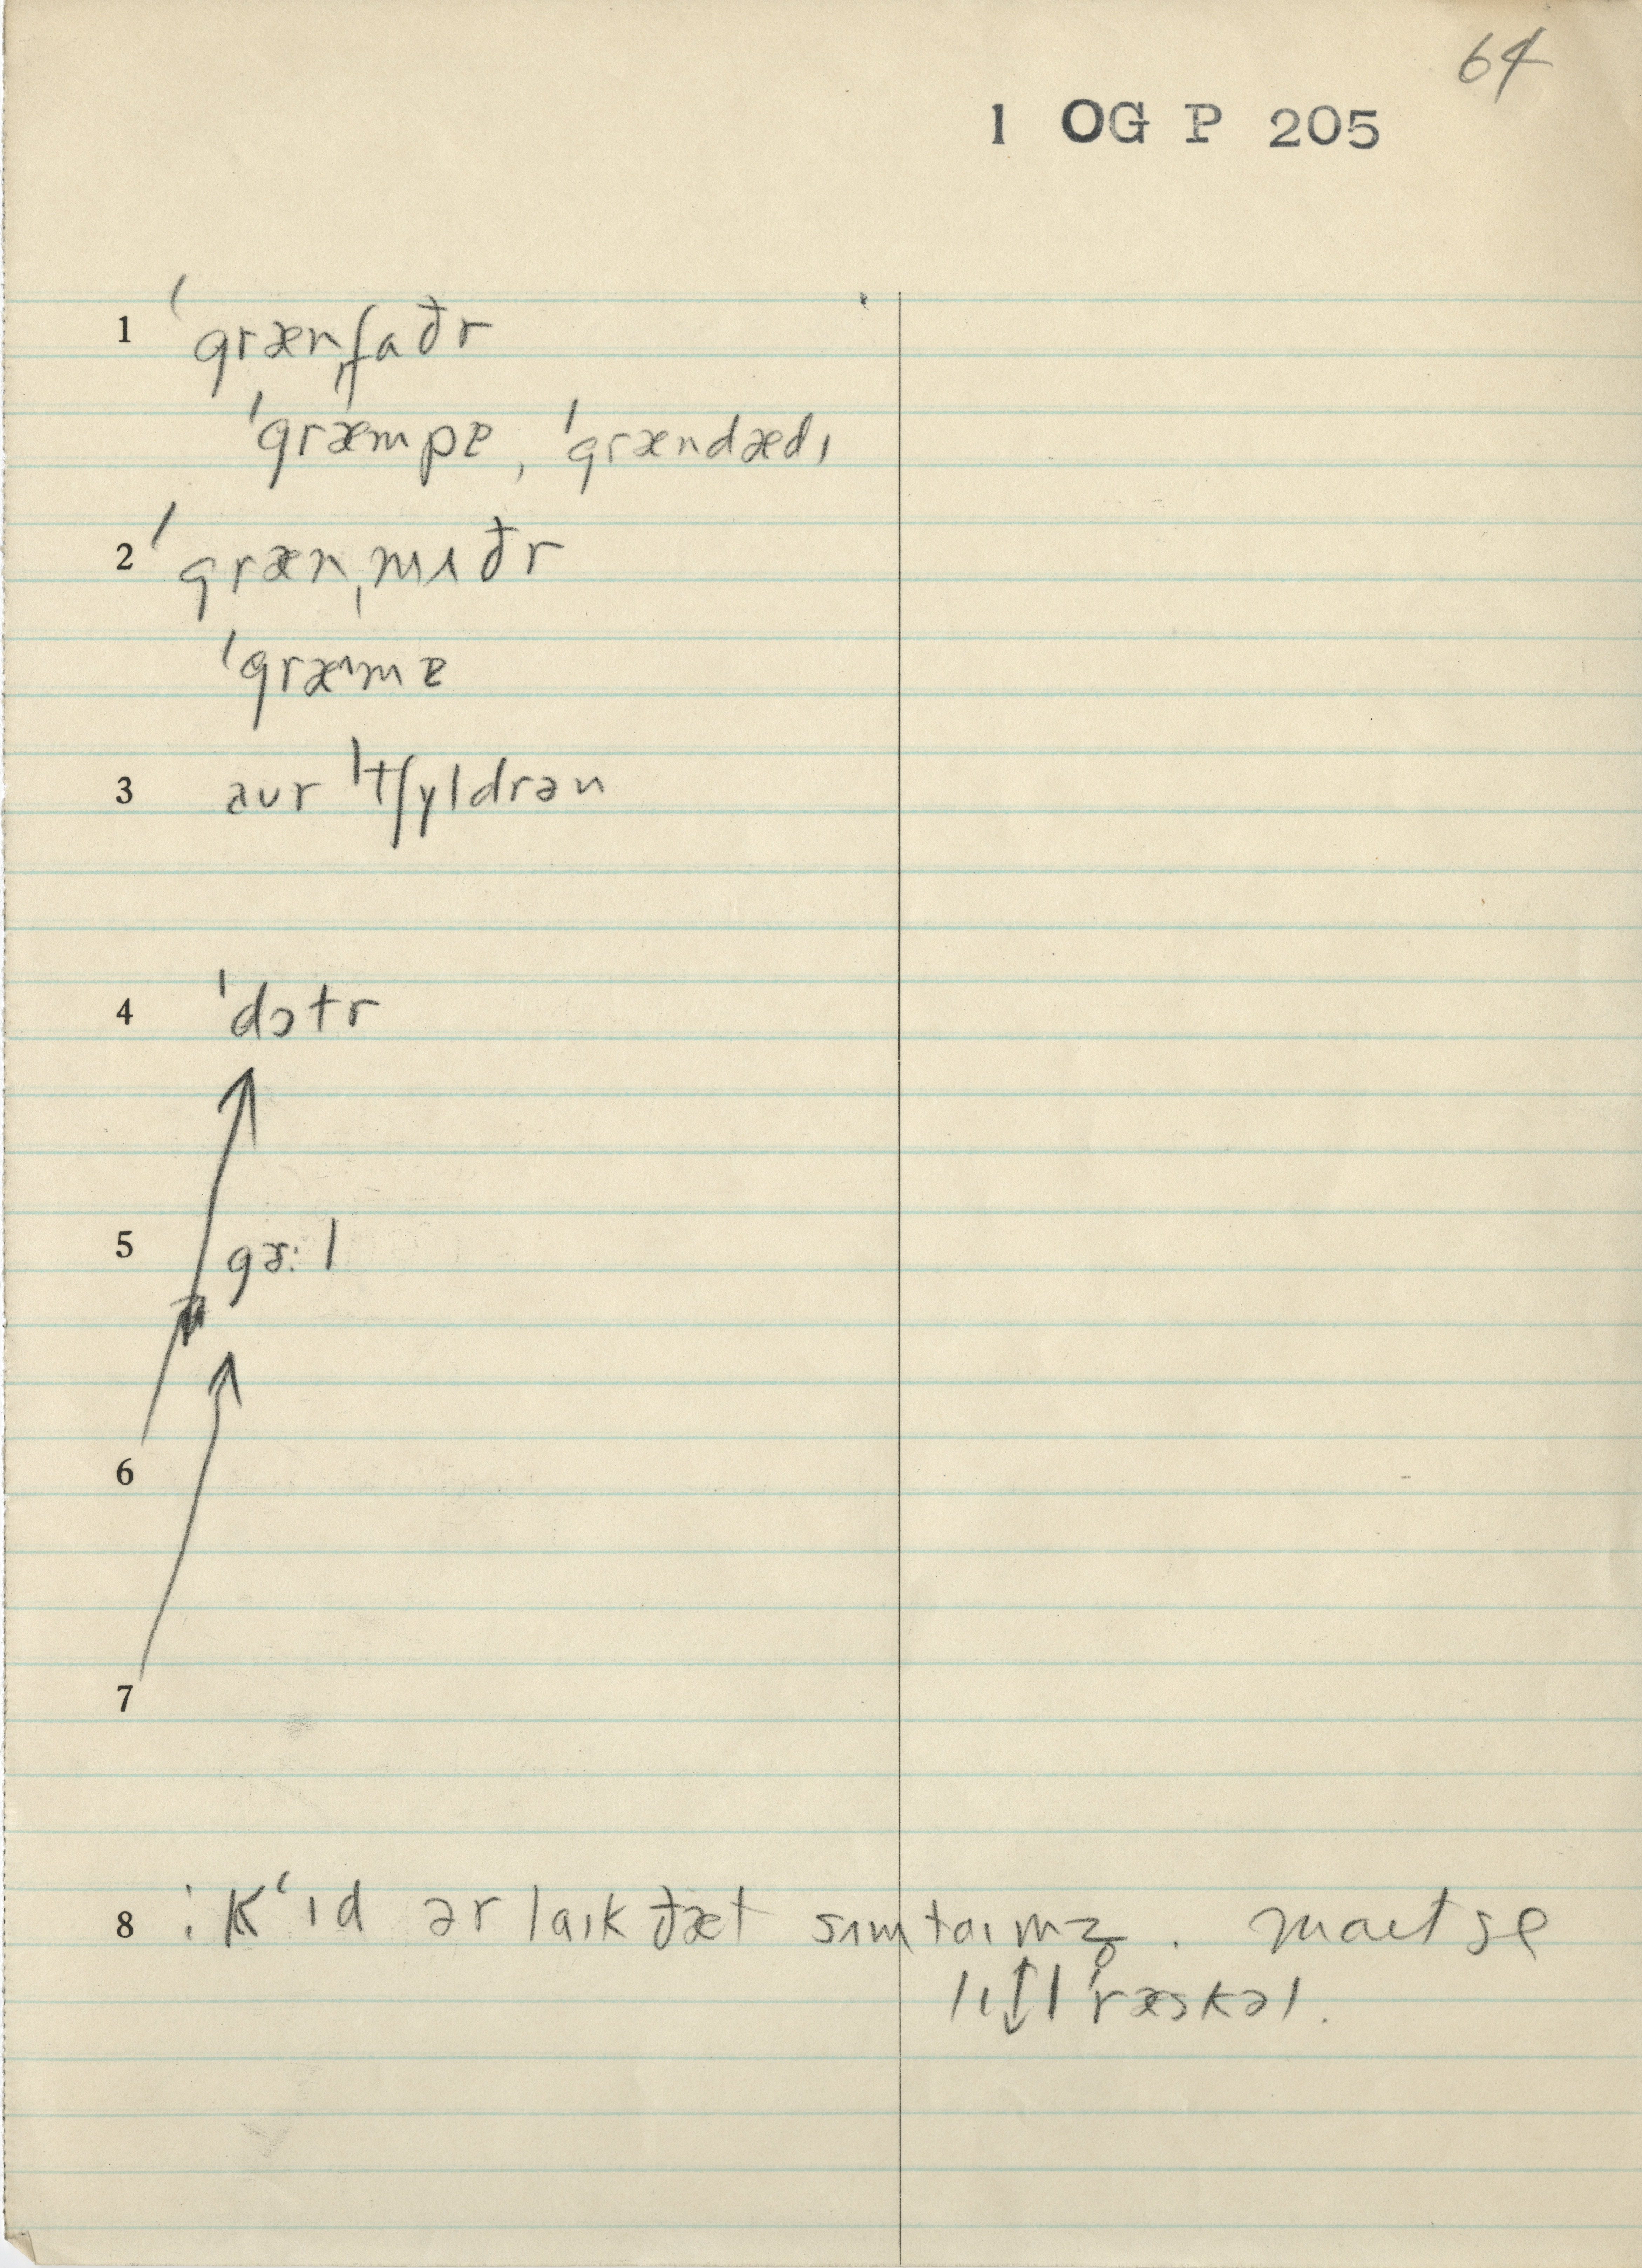 64
1 OG P 205
1 ˈgrænˌfaðr
ˈgræmpɐ, ˈgrændædɪ
2 ˈgrænˌmʌðr
ˈgræˑmɐ
3 aʊr ˈtʃɪldrən
4 ˈdɔtr
5 gɜ:l
6
7
8 : Kʻɪd ər laɪk ðæt sʌmtaɪmz̥. maɪt se
lɪtl ˈræskəl.